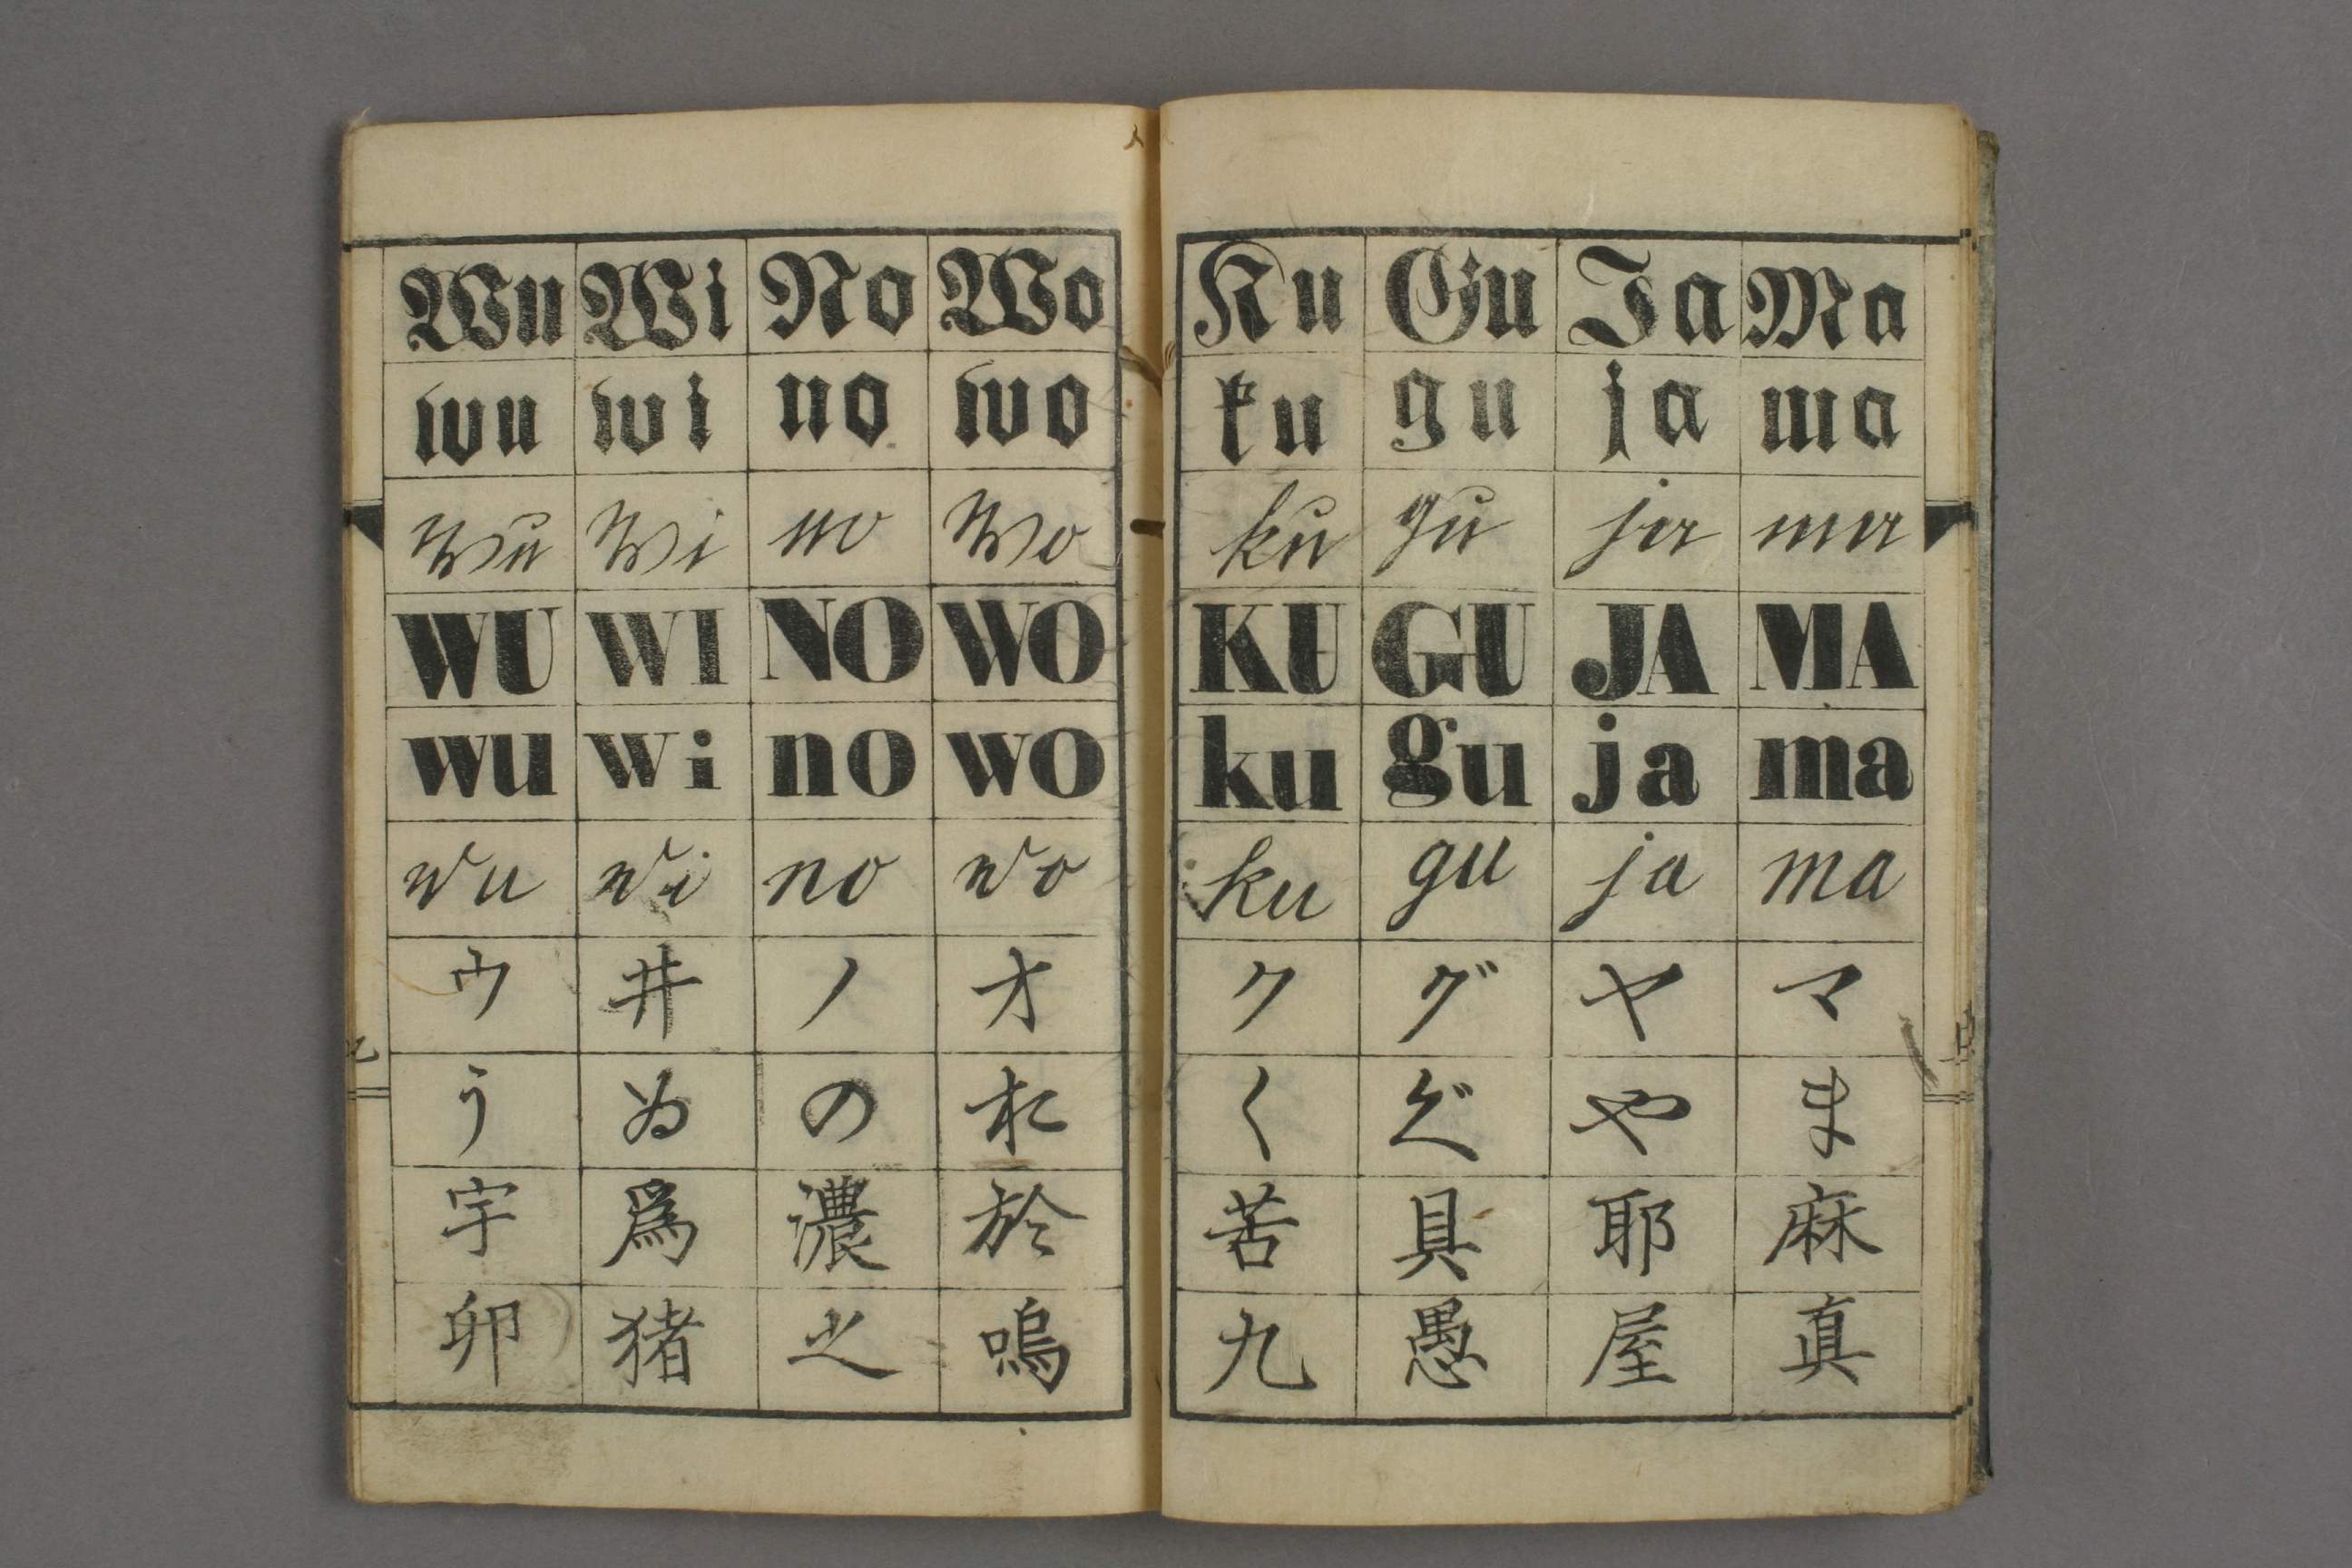 Wu Wi No Wo Ku Gu Ja Ma
wu wi no wo ku gu ja ma
wu wi no wo ku gu ja ma
WU WI NO WO KU GU JA MA
wu wi no wo ku gu ja ma
wu wi no wo ku gu ja ma
ウ 井 ノ オ ク グ ヤ マ
う ゐ の お く ぐ や ま
宇 爲 濃 於 苦 具 耶 麻
卯 猪 之 嗚 九 愚 屋 真